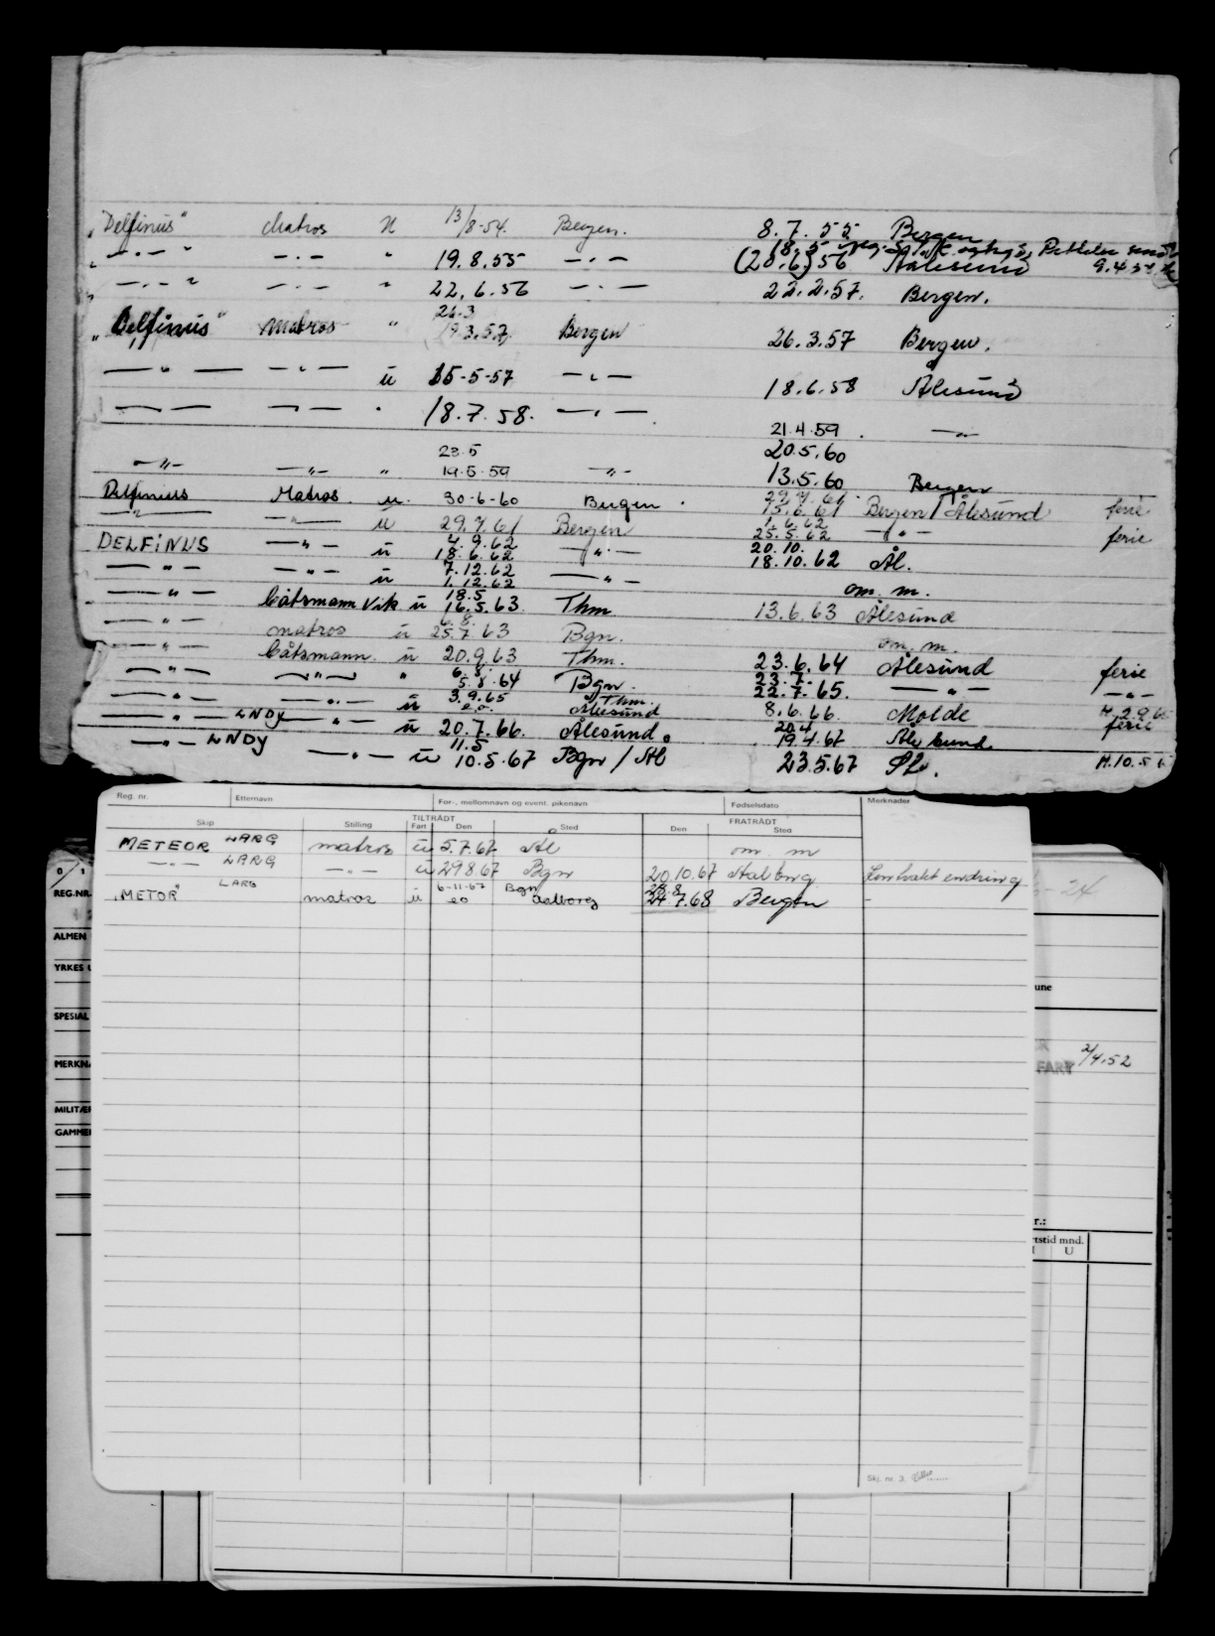 "Delfinus" Matros U 13/8-54. Bergen. 8.7.55 Bergen
—"— —"— " 19.8.55 —"— (20.6)56 Ålesund 9.4.57
—"— —"— " 22.6.56 —"— 22.2.57. Bergen.
26.3
"Delfinus" Matros " 19.3.57. Bergen 26.3.57 Bergen.
—"— —"— ü 15-5-57 —"— 18.6.58 Ålesund
—"— —"— " 18.7.58. —"— 21.4.59 —"—
23.5 20.5.60
—"— —"— " 19.5.59 —"— 13.5.60 Bergen
Delfinus Matros u. 30-6-60 Bergen.
—"— —"— ü 29.7.61 Bergen 15.6.61 Bergen / Ålesund ferie
4.9.62 1.6.62
DELFINUS —"— ü 18.6.62 —"— 25.5.62 —"— ferie
7.12.62 20.10.
—"— —"— ü 1.12.62 —"— 18.10.62 Ål.
18.5 om. m.
—"— båtsmann Vik ü 16.5.63 Thm. 13.6.63 Ålesund
6.8.
—"— matros ü 25.7.63 Bgn. om. m.
—"— båtsmann. ü 20.9.63 Thm. 23.6.64 Ålesund ferie
6.8. 23.7.
—"— —"— " 5.8.64 Bgn. 22.7.65. —"— —"—
3.9.65 Thm.
—"— —"— ü eo. Ålesund 8.6.66. Molde
20.4 ferie
—"— LNDY —"— ü 20.7.66. Ålesund. 19.4.67 Ålesund.
11.5
—"— LNDY —"— ü 10.5.67 Bgn / Ål 23.5.67 Ål. M.10.5
Reg. nr. Etternavn For-, mellomnavn og event. pikenavn Fødselsdato Merknader
TILTRÅDT FRATRÅDT
Skip Stilling Fart Den Sted Den Sted
METEOR LARG matros ü 5.7.67 Ål om. m
—"— LARG —"— ü 29.8.67 Bgn 20.10.67 Aalborg Kontrakt endring
LARG 6-11-67 Bgn 28.8
"METOR" matros ü eo Aalborg 24.7.68 Bergen -
Skj. nr. 3.
0 1
REG.NR.
ALMEN
YRKES
SPESIAL
MERKNA
MILITÆR
GAMMEL
24
une
FART 2/4.52
r.:
rtstid mnd.
U